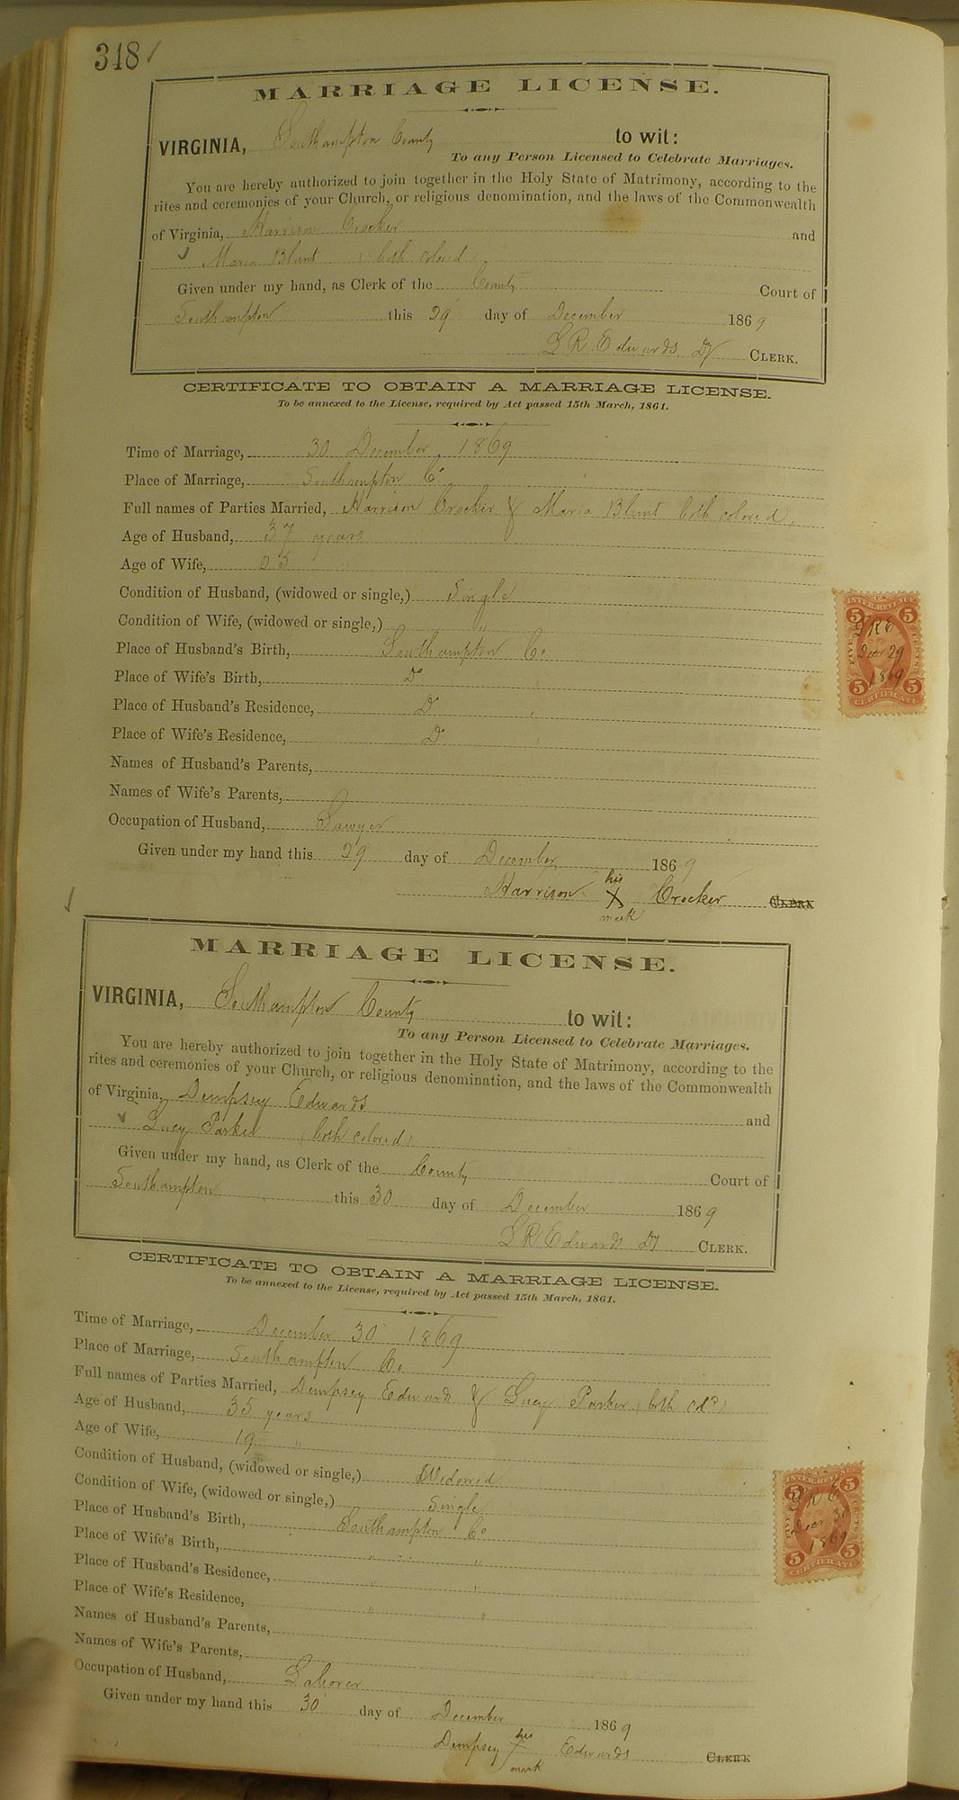 348
MARRIAGE LICENSE.
VIRGINIA, Southampton County to wit:
To any Person Licensed to Celebrate Marriages.
You are hereby authorized to join together in the Holy State of Matrimony, according to the
rites and ceremonies of your Church, or religious denomination, and the laws of the Commonwealth
of Virginia, Harrison Crocker and
Maria Blunt (both colored)
Given under my hand, as Clerk of the County Court of
Southampton this 29 day of December 1869
L R Edwards D CLERK.
CERTIFICATE TO OBTAIN A MARRIAGE LICENSE.
To be annexed to the License, required by Act passed 15th March, 1861.
Time of Marriage, 30 December, 1869
Place of Marriage, Southampton Co
Full names of Parties Married, Harrison Crocker & Maria Blunt both colored,
Age of Husband, 37 years
Age of Wife,
Condition of Husband, (widowed or single,) Single
Condition of Wife, (widowed or single,) "
Place of Husband's Birth, Southampton Co
Place of Wife's Birth, Do "
Place of Husband's Residence, Do "
Place of Wife's Residence, Do "
Names of Husband's Parents,
Names of Wife's Parents,
Occupation of Husband, Sawyer
Given under my hand this 29 day of December 1869
Harrison his X mark Crocker CLERK
INTER. REVENUE
5 5
FIVE CENTS
L R E
Decr 29
1869
5 5
CERTIFICATE
MARRIAGE LICENSE.
VIRGINIA, Southampton County to wit:
To any Person Licensed to Celebrate Marriages.
You are hereby authorized to join together in the Holy State of Matrimony, according to the
rites and ceremonies of your Church, or religious denomination, and the laws of the Commonwealth
of Virginia, Dempsey Edwards and
Lucy Parker (both colored)
Given under my hand, as Clerk of the County Court of
Southampton this 30 day of December 1869
L R Edwards D CLERK.
CERTIFICATE TO OBTAIN A MARRIAGE LICENSE.
To be annexed to the License, required by Act passed 15th March, 1861.
Time of Marriage, December 30 1869
Place of Marriage, Southampton Co
Full names of Parties Married, Dempsey Edwards & Lucy Parker (both cold)
Age of Husband, 35 years
Age of Wife, 19 "
Condition of Husband, (widowed or single,) Widowed
Condition of Wife, (widowed or single,) Single
Place of Husband's Birth, Southampton Co
Place of Wife's Birth, " "
Place of Husband's Residence, " "
Place of Wife's Residence, " "
Names of Husband's Parents,
Names of Wife's Parents,
Occupation of Husband, Laborer
Given under my hand this 30 day of December 1869
Dempsey his X mark Edwards CLERK
INTER. REVENUE
5 5
FIVE CENTS
L R E
Decr 30
1869
5 5
CERTIFICATE